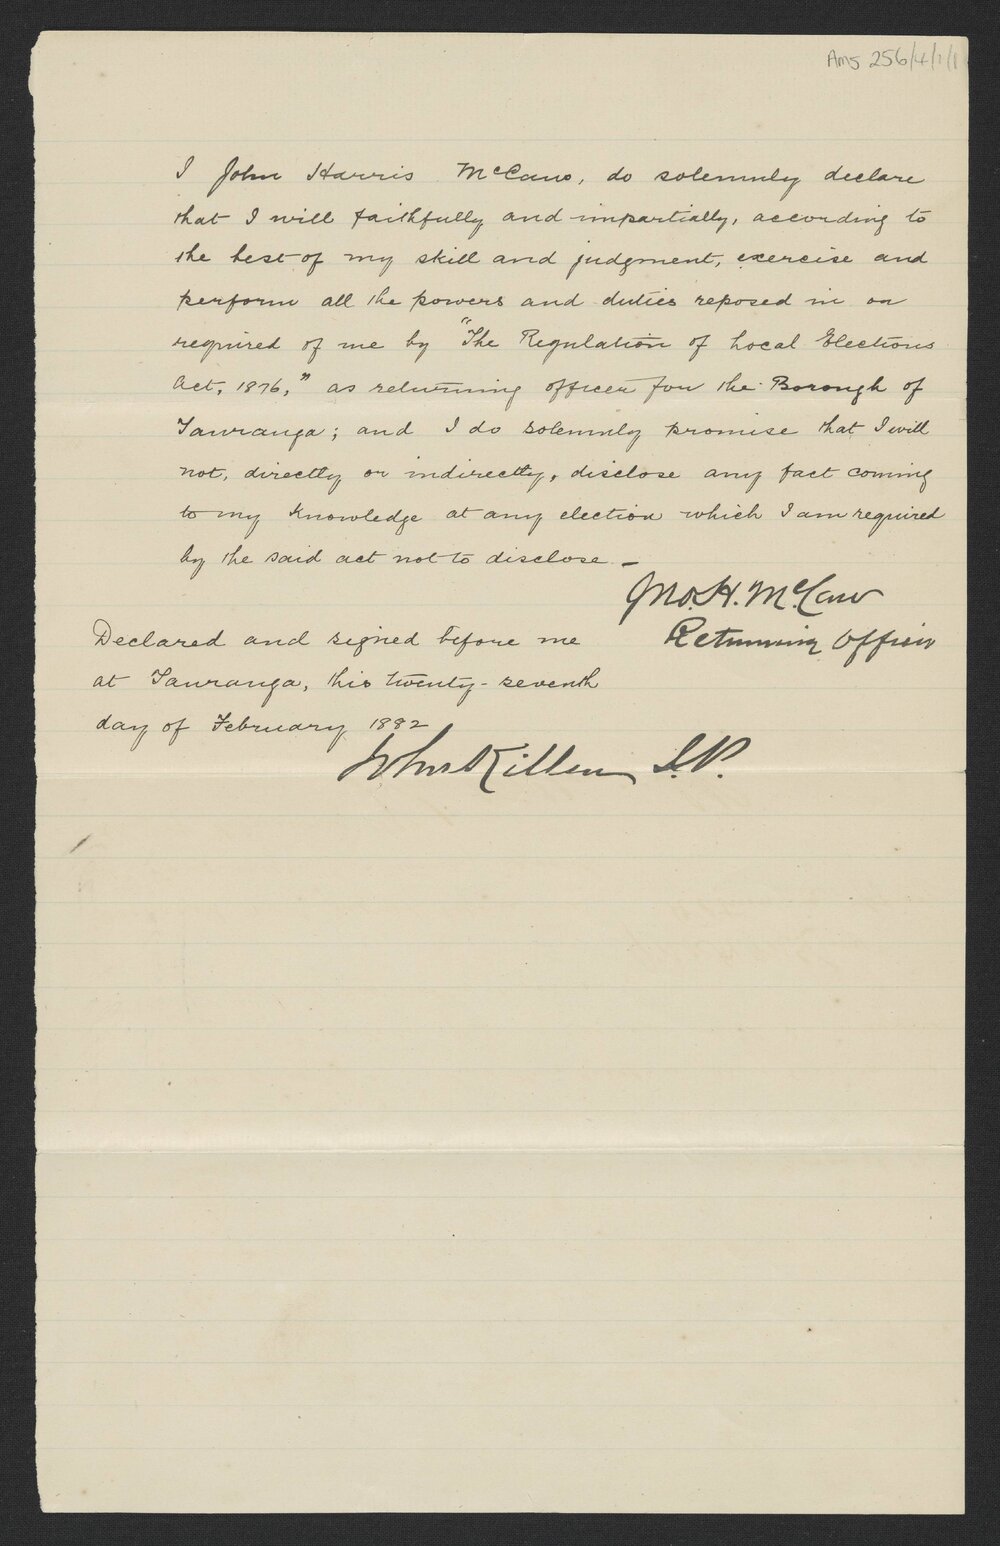 Ams 256/4/1/1
I John Harris McCaw, do solemnly declare
that I will faithfully and impartially, according to
the best of my skill and judgment, exercise and
perform all the powers and duties reposed in or
required of me by "The Regulation of Local Elections
Act, 1876," as returning officer for the Borough of
Tauranga; and I do solemnly promise that I will
not, directly or indirectly, disclose any fact coming
to my knowledge at any election which I am required
by the said act not to disclose. —
Jno. H. McCaw
Returning Officer
Declared and signed before me
at Tauranga, this twenty-seventh
day of February 1882
John Killen J.P.